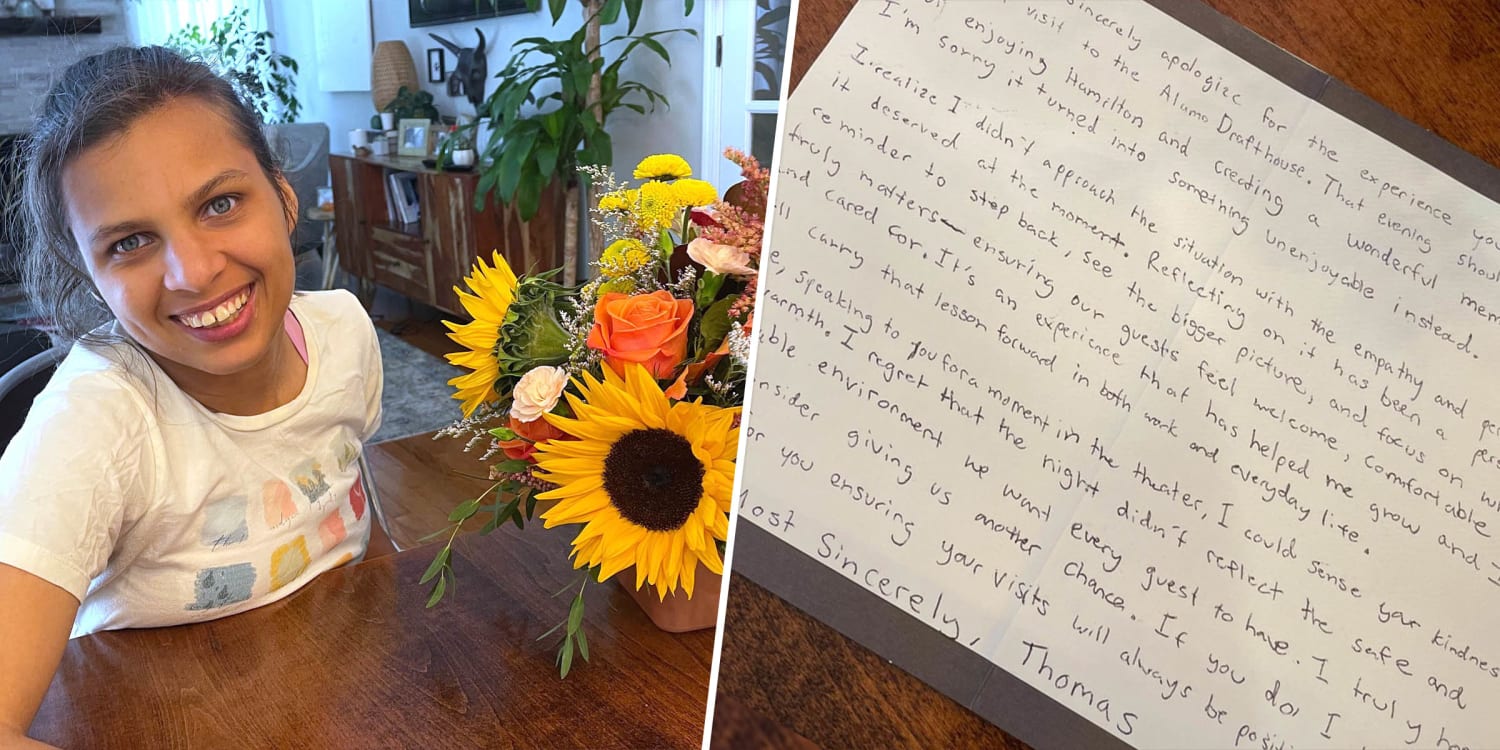 sincerely apologize for the experience you
visit to the Alamo Drafthouse. That evening shoul
enjoying Hamilton and creating a wonderful mem
I'm sorry it turned into something unenjoyable instead.
I realize I didn't approach the situation with the empathy and
it deserved at the moment. Reflecting on it has been a pers
reminder to step back, see the bigger picture, and focus on wh
truly matters— ensuring our guests feel welcome, comfortable
and cared for. It's an experience that has helped me grow and I
carry that lesson forward in both work and everyday life.
speaking to you for a moment in the theater, I could sense your kindness
warmth. I regret that the night didn't reflect the safe and
environment we want every guest to have. I truly ho
consider giving us another chance. If you do, I
for you ensuring your visits will always be posit
Most Sincerely, Thomas